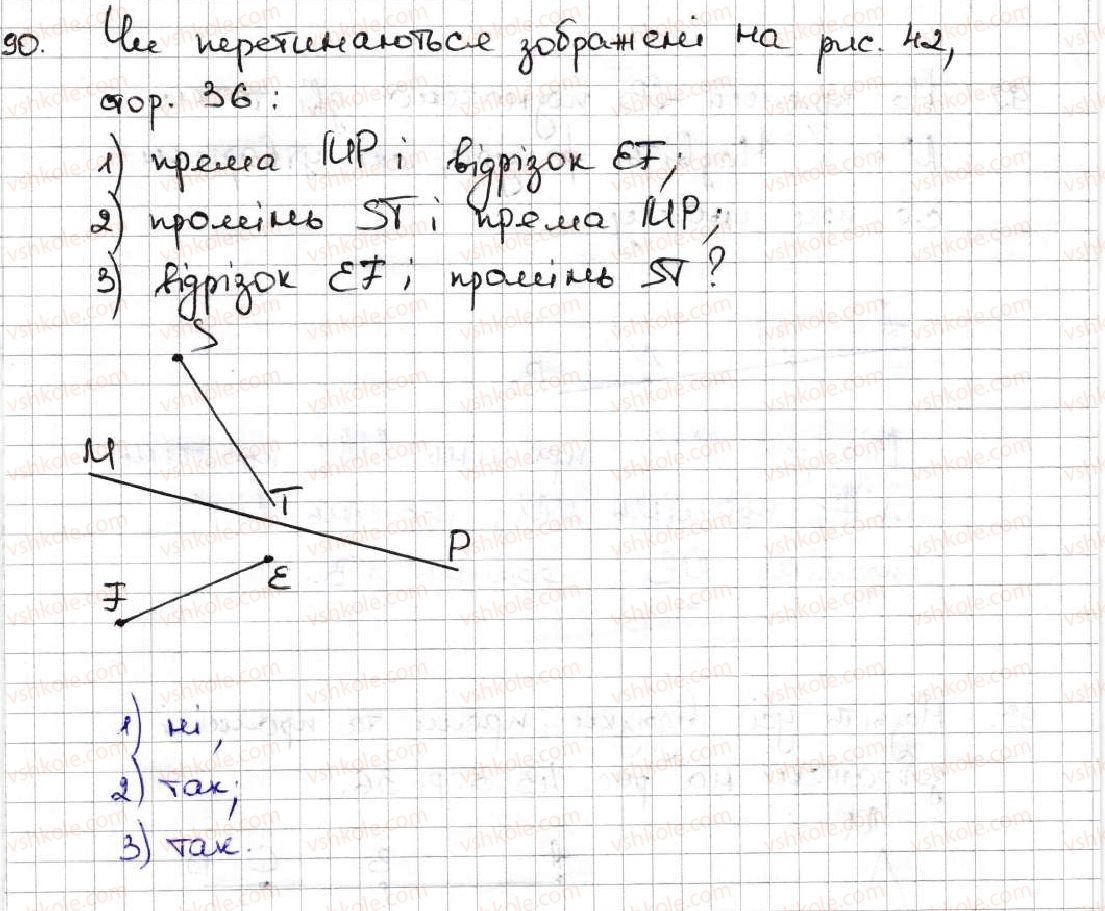 90. Чи перетинаються зображені на рис. 42,
стор. 36:
1) пряма MP і відрізок EF;
2) промінь ST і пряма MP;
3) відрізок EF і промінь ST?
S
M
T
P
E
F
1) ні,
2) так;
3) так.
vshkole.com